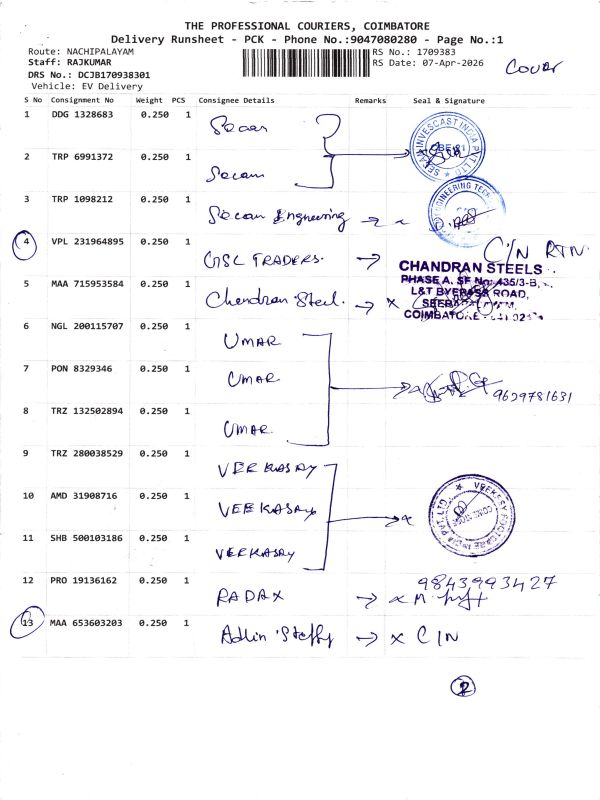 THE PROFESSIONAL COURIERS, COIMBATORE
Delivery Runsheet - PCK - Phone No.:9047080280 - Page No.:1
Route: NACHIPALAYAM
RS No.: 1709383
Staff: RAJKUMAR
RS Date: 07-Apr-2026
DRS No.: DCJB170938301
Vehicle: EV Delivery
Cover
S No Consignment No Weight PCS Consignee Details Remarks Seal & Signature
1 DDG 1328683 0.250 1 Secan
2 TRP 6991372 0.250 1 Secam
3 TRP 1098212 0.250 1 Secan Engneering
4 VPL 231964895 0.250 1 GSC TRADERS. C/N RTN
5 MAA 715953584 0.250 1 Chendran Steel. X
CHANDRAN STEELS
PHASE A, SF No: 435/3-B,
L&T BYEPASS ROAD,
6 NGL 200115707 0.250 1 UMAR
7 PON 8329346 0.250 1 UMAR
9629781631
8 TRZ 132502894 0.250 1 UMAR
9 TRZ 280038529 0.250 1 VEEKASAY
10 AMD 31908716 0.250 1 VEEKASAY
11 SHB 500103186 0.250 1 VEEKASAY
12 PRO 19136162 0.250 1 RADAX
9843993427
13 MAA 653603203 0.250 1 Adlin Steffy X C/N
2